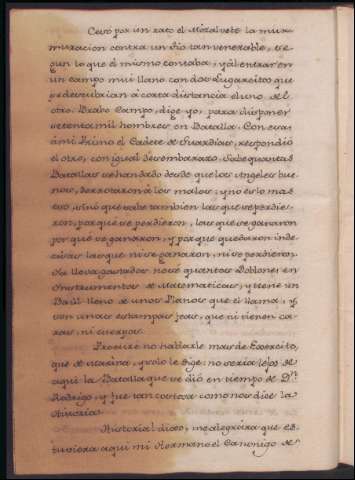 Cesó por un rato el Mozalvete la mur-
muracion contra un tio tan venerable, se-
gun lo que él mismo contaba; y al entrar en
un campo mui llano con dos Lugarcitos que
se descubrian à corta distancia el uno del
otro. Brabo Campo, dige yo, para disponer
setenta mil hombres en Batalla. Con esas
à mi Primo el Cadete de Guardias, respondió
el otro, con igual desembarazo. Sabe quantas
Batallas se han dado desde que los Angeles bue-
nos, derrotaron à los malos; y no es lo mas
eso, sinó que sabe tambien las que se perdie-
ron, porqué se perdieron, las que se ganaron
por qué se ganaron, y por que quedaron inde-
cisas las que ni se ganaron, ni se perdieron.
Ya lleva gastados no sé quantos Doblones en
Instrumentos de Matematicas, y tiene un
Baùl lleno de unos Planos que él llama, y
son unas estampas feas, que ni tienen ca-
ras, ni cuerpos.
Procuré no hablarle mas de Exército,
que de marina, y solo le dige: no seria lejos de
aqui la Batalla que se dió en tiempo de Dn.
Rodrigo, y fue tan costosa como nos dice la
Historia.
Historia! dixo, me alegraria que es-
tuviera aqui mi Hermano el Canonigo de